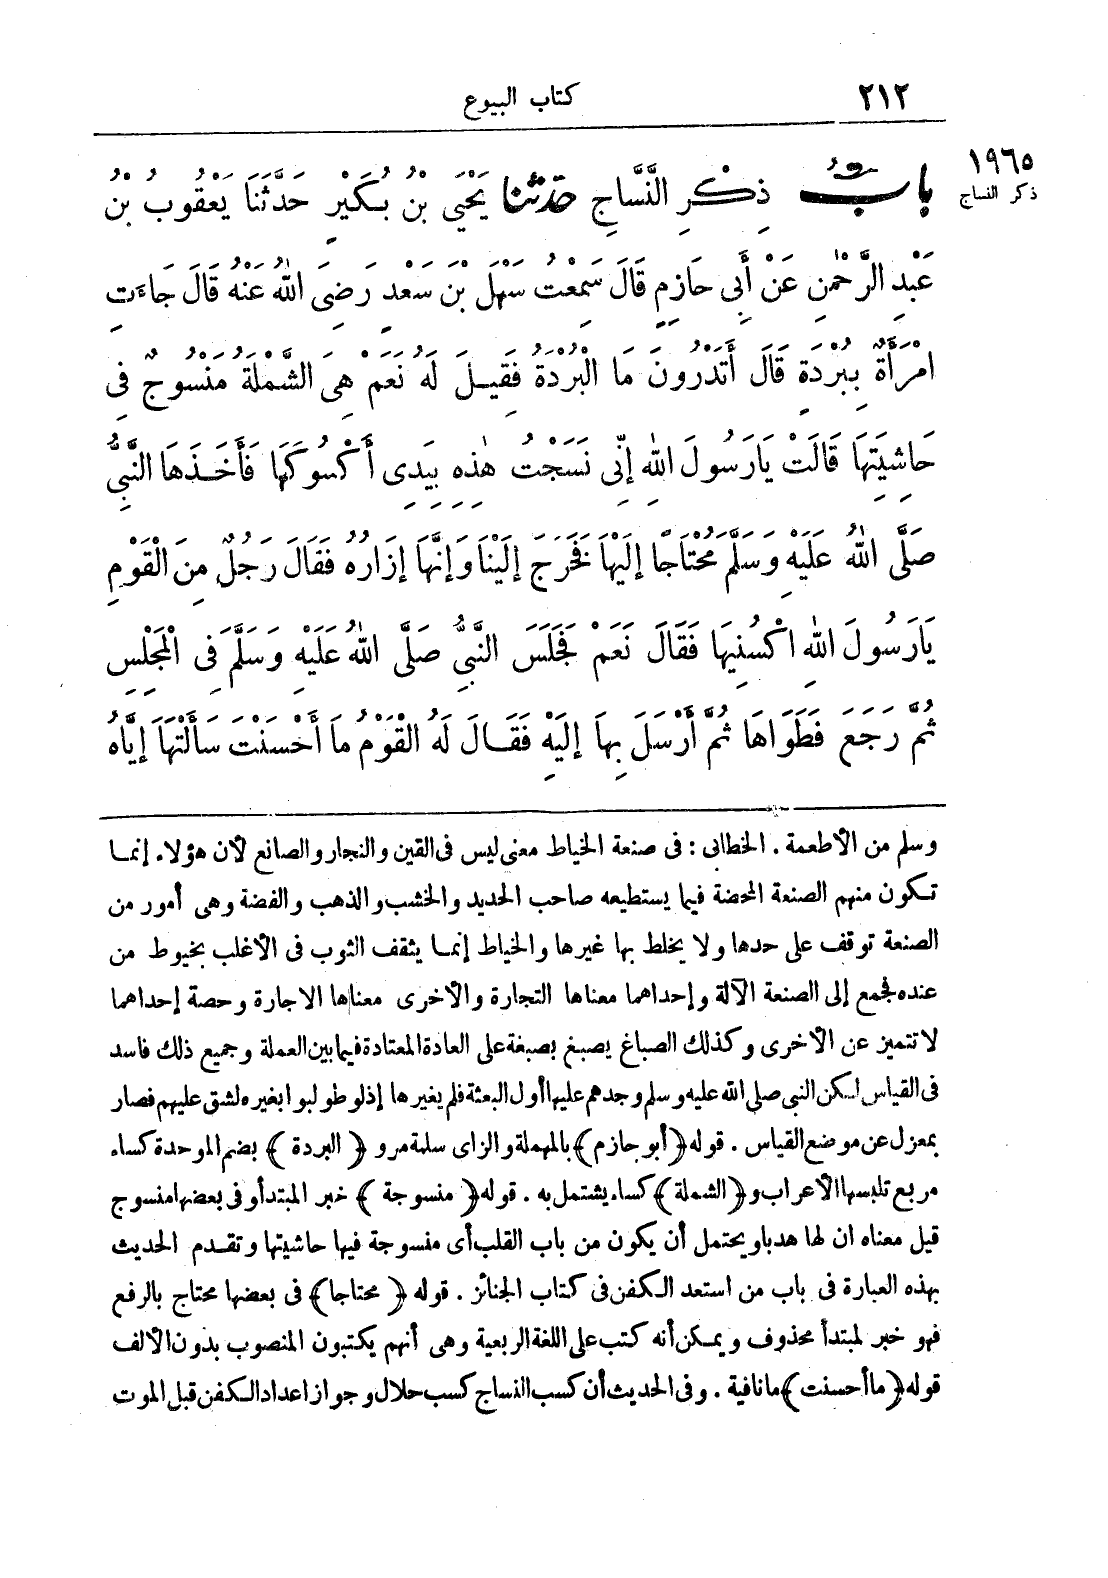 ٢١٢ كتاب البيوع
١٩٦٥
ذكر النساج
بابُ ذِكْرِ النَّسَّاجِ حَدَّثَنَا يَحْيَى بْنُ بُكَيْرٍ حَدَّثَنَا يَعْقُوبُ بْنُ
عَبْدِ الرَّحْمٰنِ عَنْ أَبِي حَازِمٍ قَالَ سَمِعْتُ سَهْلَ بْنَ سَعْدٍ رَضِىَ اللهُ عَنْهُ قَالَ جَاءَتِ
امْرَأَةٌ بِبُرْدَةٍ قَالَ أَتَدْرُونَ مَا الْبُرْدَةُ فَقِيلَ لَهُ نَعَمْ هِىَ الشَّمْلَةُ مَنْسُوجٌ فِى
حَاشِيَتِهَا قَالَتْ يَارَسُولَ اللهِ إِنِّى نَسَجْتُ هٰذِهِ بِيَدِى أَكْسُوكَهَا فَأَخَذَهَا النَّبِىُّ
صَلَّى اللهُ عَلَيْهِ وَسَلَّمَ مُحْتَاجًا إِلَيْهَا فَخَرَجَ إِلَيْنَا وَإِنَّهَا إِزَارُهُ فَقَالَ رَجُلٌ مِنَ الْقَوْمِ
يَارَسُولَ اللهِ اكْسُنِيهَا فَقَالَ نَعَمْ فَجَلَسَ النَّبِىُّ صَلَّى اللهُ عَلَيْهِ وَسَلَّمَ فِى الْمَجْلِسِ
ثُمَّ رَجَعَ فَطَوَاهَا ثُمَّ أَرْسَلَ بِهَا إِلَيْهِ فَقَالَ لَهُ الْقَوْمُ مَا أَحْسَنْتَ سَأَلْتَهَا إِيَّاهُ
وسلم من الأطعمة . الخطابى : فى صنعة الخياط معنى ليس فى القين والنجار والصائغ لأن هؤلاء إنما
تكون منهم الصنعة المحضة فيما يستطيعه صاحب الحديد والخشب والذهب والفضة وهى أمور من
الصنعة توقف على حدها ولا يخلط بها غيرها والخياط إنما يثقف الثوب فى الأغلب بخيوط من
عنده فجمع إلى الصنعة الآلة وإحداهما معناها التجارة والأخرى معناها الاجارة وحصة إحداهما
لا تتميز عن الأخرى وكذلك الصباغ يصبغ بصبغة على العادة المعتادة فيما بين العملة وجميع ذلك فاسد
فى القياس لكن النبى صلى الله عليه وسلم وجدهم عليها أول البعثة فلم يغيرها إذ لو طولبوا بغيره لشق عليهم فصار
بمعزل عن موضع القياس . قوله ﴿أبو حازم﴾ بالمهملة والزاى سلمة مر و ﴿البردة﴾ بضم الموحدة كساء
مربع تلبسها الأعراب و ﴿الشملة﴾ كساء يشتمل به . قوله ﴿منسوجة﴾ خبر المبتدأ وفى بعضها منسوج
قيل معناه ان لها هدبا ويحتمل أن يكون من باب القلب أى منسوجة فيها حاشيتها وتقدم الحديث
بهذه العبارة فى باب من استعد الكفن فى كتاب الجنائز . قوله ﴿محتاجا﴾ فى بعضها محتاج بالرفع
فهو خبر لمبتدأ محذوف ويمكن أنه كتب على اللغة الربعية وهى أنهم يكتبون المنصوب بدون الألف
قوله ﴿ما أحسنت﴾ ما نافية . وفى الحديث أن كسب النساج كسب حلال وجواز اعداد الكفن قبل الموت